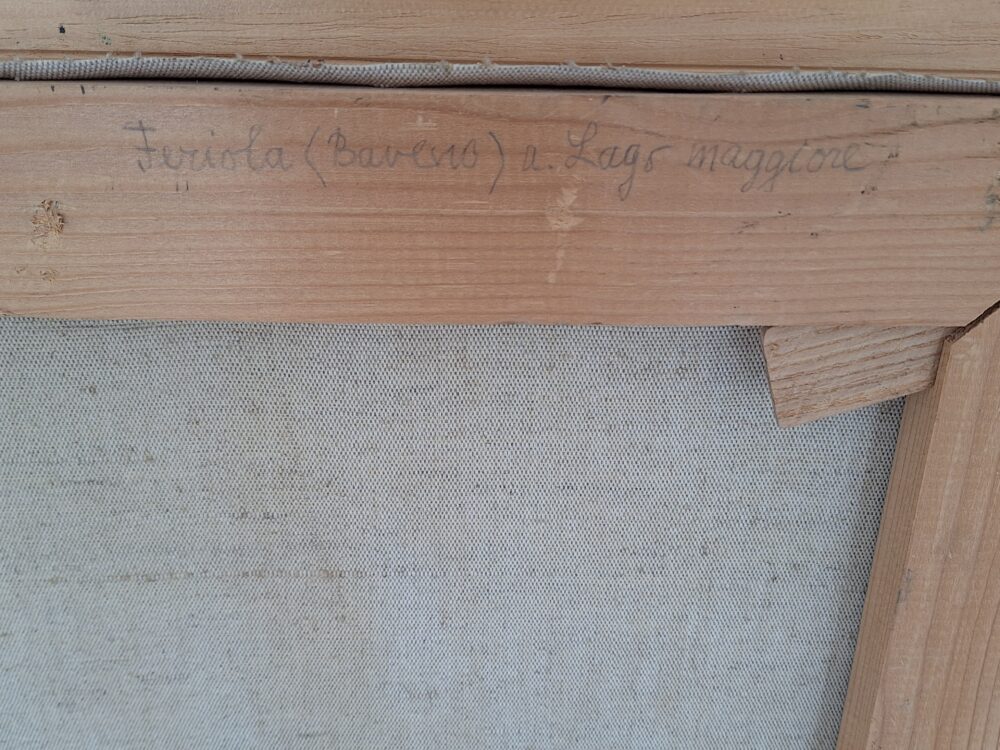 Feriola (Baveno) a. Lago maggiore